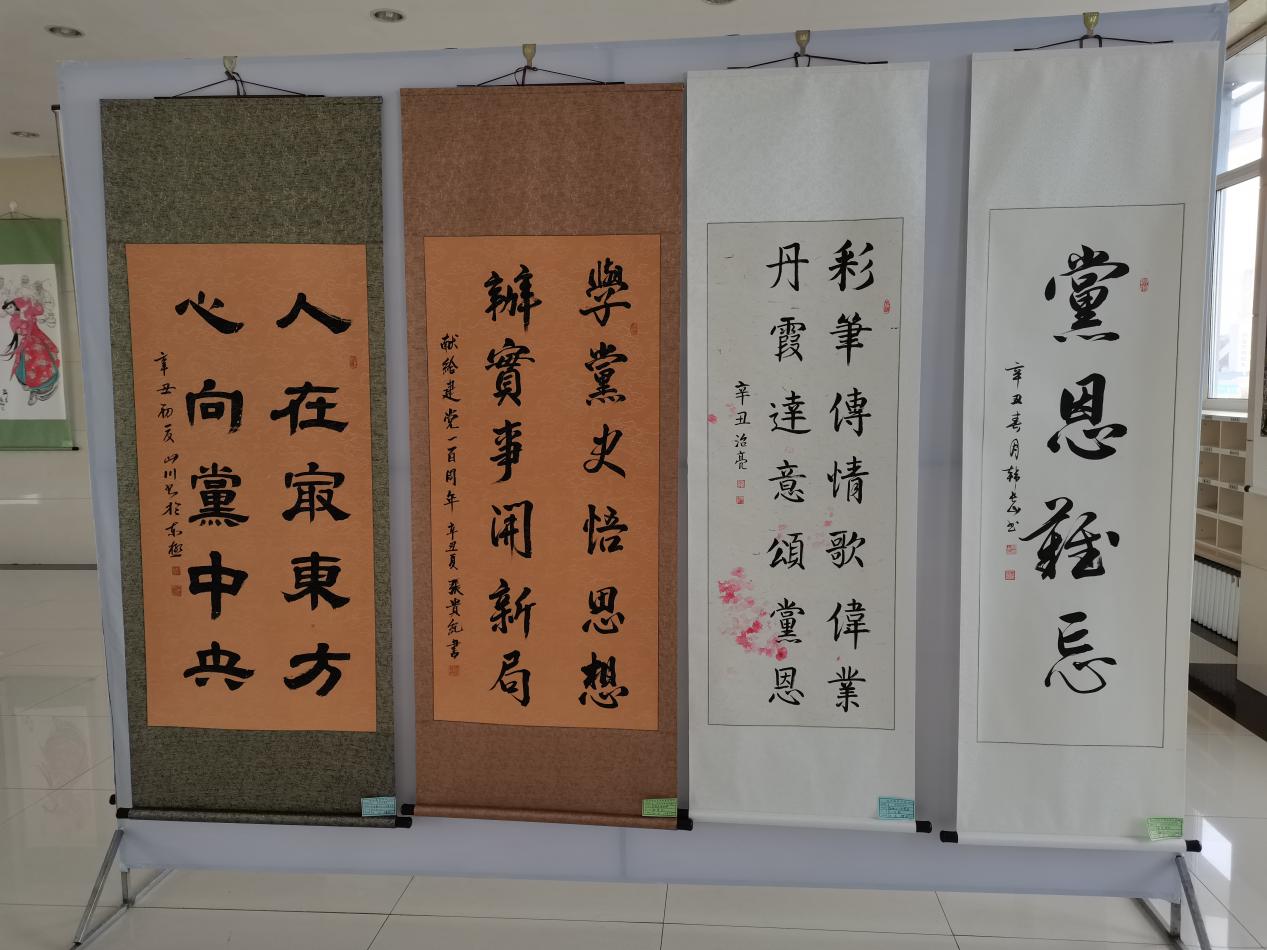 黨恩難忘
辛丑春月韩
彩筆傳情歌偉業
丹霞達意頌黨恩
辛丑治亮
學黨史悟思想
辦實事開新局
献给建党一百周年 辛丑夏 张貴纯書
人在寂東方
心向黨中央
辛丑初夏山川书於东极